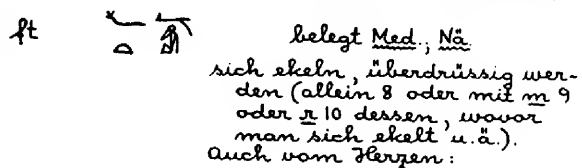 ft belegt Med., Nä.
sich ekeln, überdrüssig wer-
den (allein 8 oder mit m 9
oder r 10 dessen, wovor
man sich ekelt u.ä.).
Auch vom Herzen: